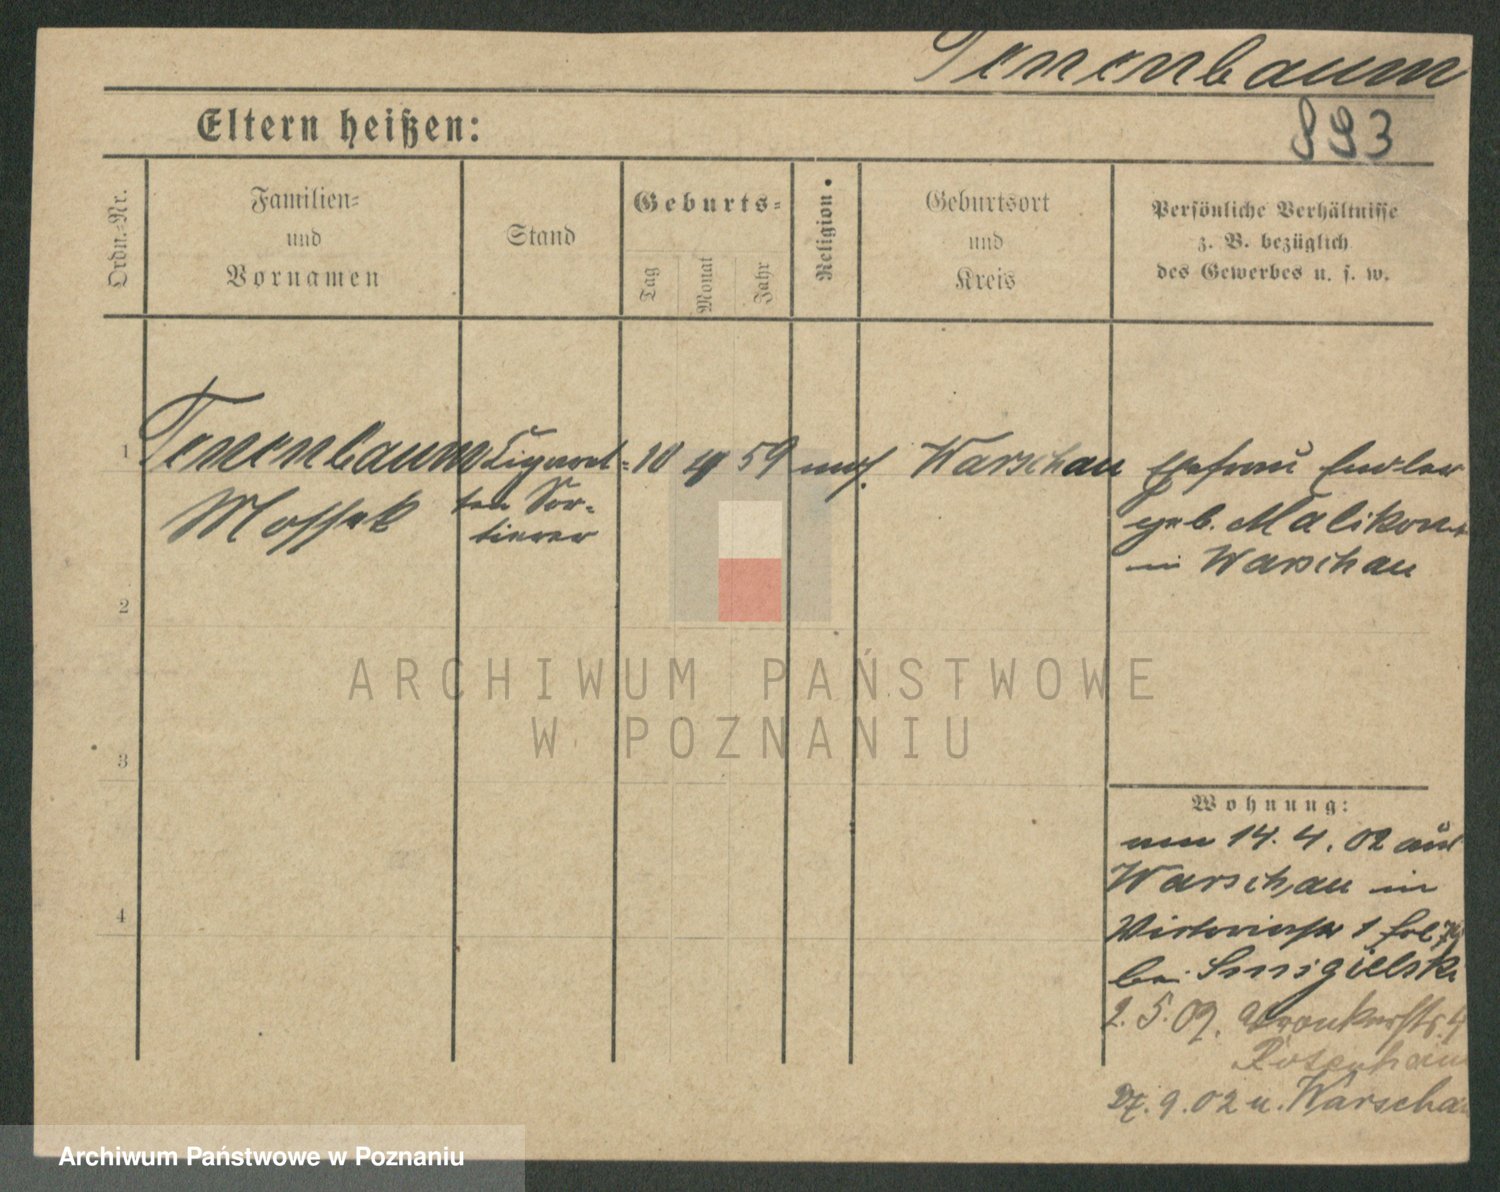 Tenenbaum
993
Eltern heißen:
Ordn.-Nr.
Familien-
und
Vornamen
Stand
Geburts-
Tag
Monat
Jahr
Religion
Geburtsort
und
Kreis
Persönliche Verhältnisse
z. B. bezüglich
des Gewerbes u. s. w.
1
Tenenbaum
Mossek
Cigaret-
ten Sor-
tierer
10 4 59 mos. Warschau
Ehefrau
geb. Malikon
in Warschau
2
3
4
Wohnung:
14. 4. 02 aus
Warschau in
1
bei Smigielski
2. 5. 02. Wronkerstr. 4
27. 9. 02 n. Warschau
ARCHIWUM PAŃSTWOWE
W POZNANIU
Archiwum Państwowe w Poznaniu